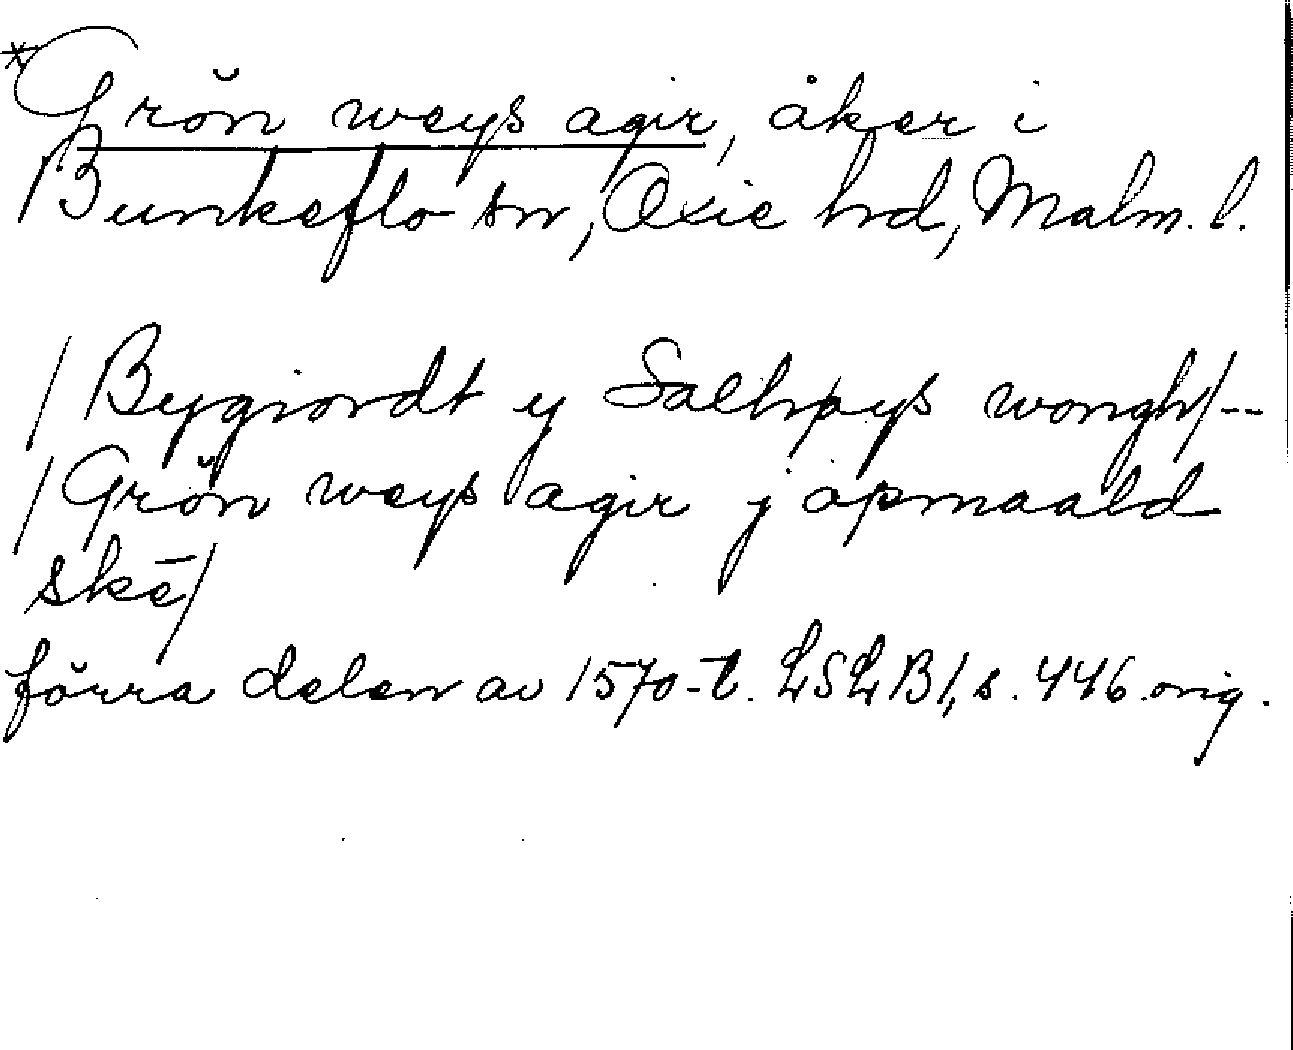 *Grön weys agir, åker i
Bunkeflo sn, Oxie hrd, Malm. l.
/Bygiordt y Salhøys wongh/--
/Grön weys agir j opmaald
skē/
förra delen av 1570-t. LSLB1, s. 446 orig.